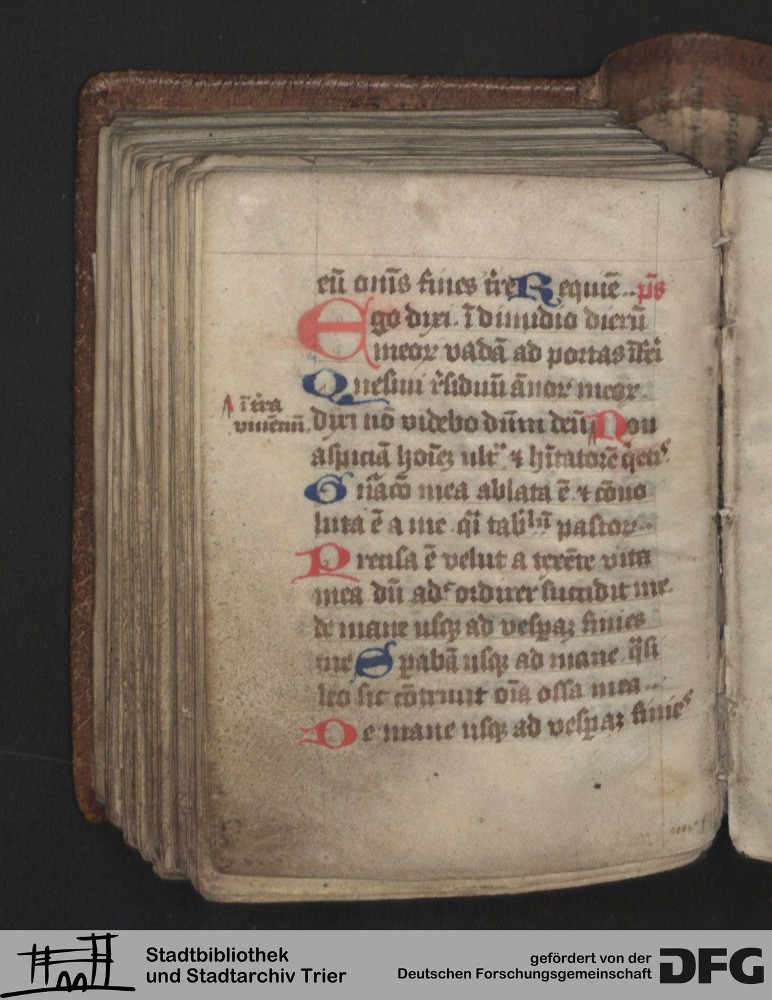 eū om̄s fines tr̄e Requiē .. p̄s
Ego dixi. ī dimidio dierū
meoꝝ vadā ad portas īferi
Quesiui r̄siduū ānoꝝ meoꝝ.
ī tr̄a
viuēciū.
dixi nō videbo dūm deū Non
aspiciā hoīeꝫ ult
Gn̄acō mea ablata ē ⁊ cōuo
luta ē a me q̄i tab pastoꝝ..
Precisa ē velut a texēte vita
mea dū adꝰ ordirer succidit me.
de mane usqꝫ ad vesꝑaꝫ finies
me Sꝑabā usqꝫ ad mane. q̄si
leo sic cōtriuit oīa ossa mea..
De mane usqꝫ ad vesꝑaꝫ finies
Stadtbibliothek
und Stadtarchiv Trier
gefördert von der
Deutschen Forschungsgemeinschaft
DFG